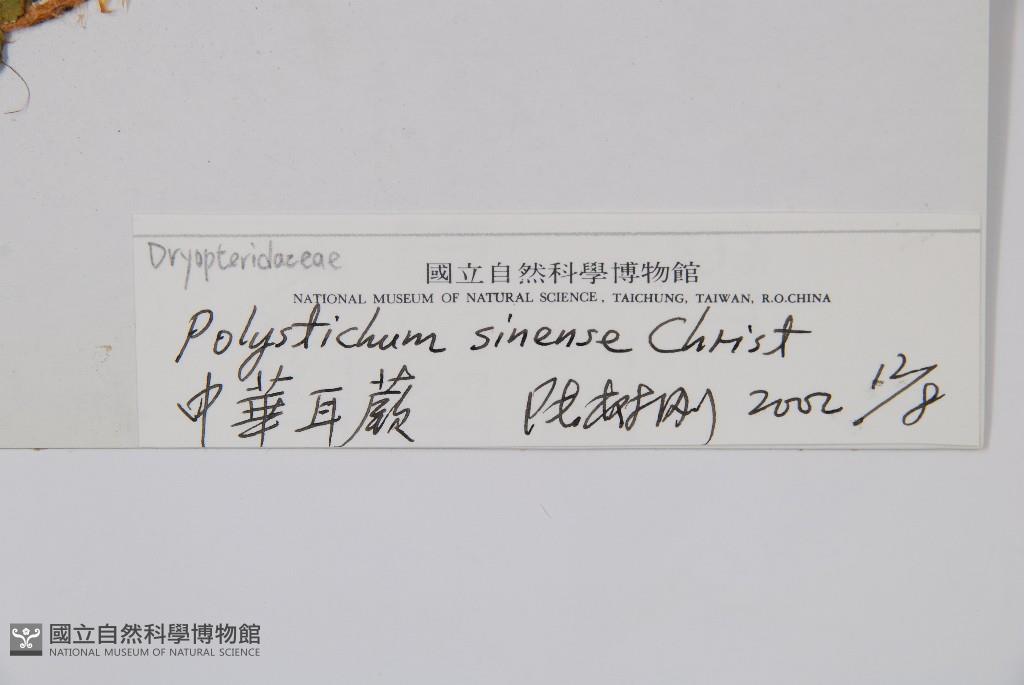 Dryopteridaceae
國立自然科學博物館
NATIONAL MUSEUM OF NATURAL SCIENCE, TAICHUNG, TAIWAN, R.O.CHINA
Polystichum sinense Christ
中華耳蕨 陸樹刚 2002 12/8
國立自然科學博物館
NATIONAL MUSEUM OF NATURAL SCIENCE